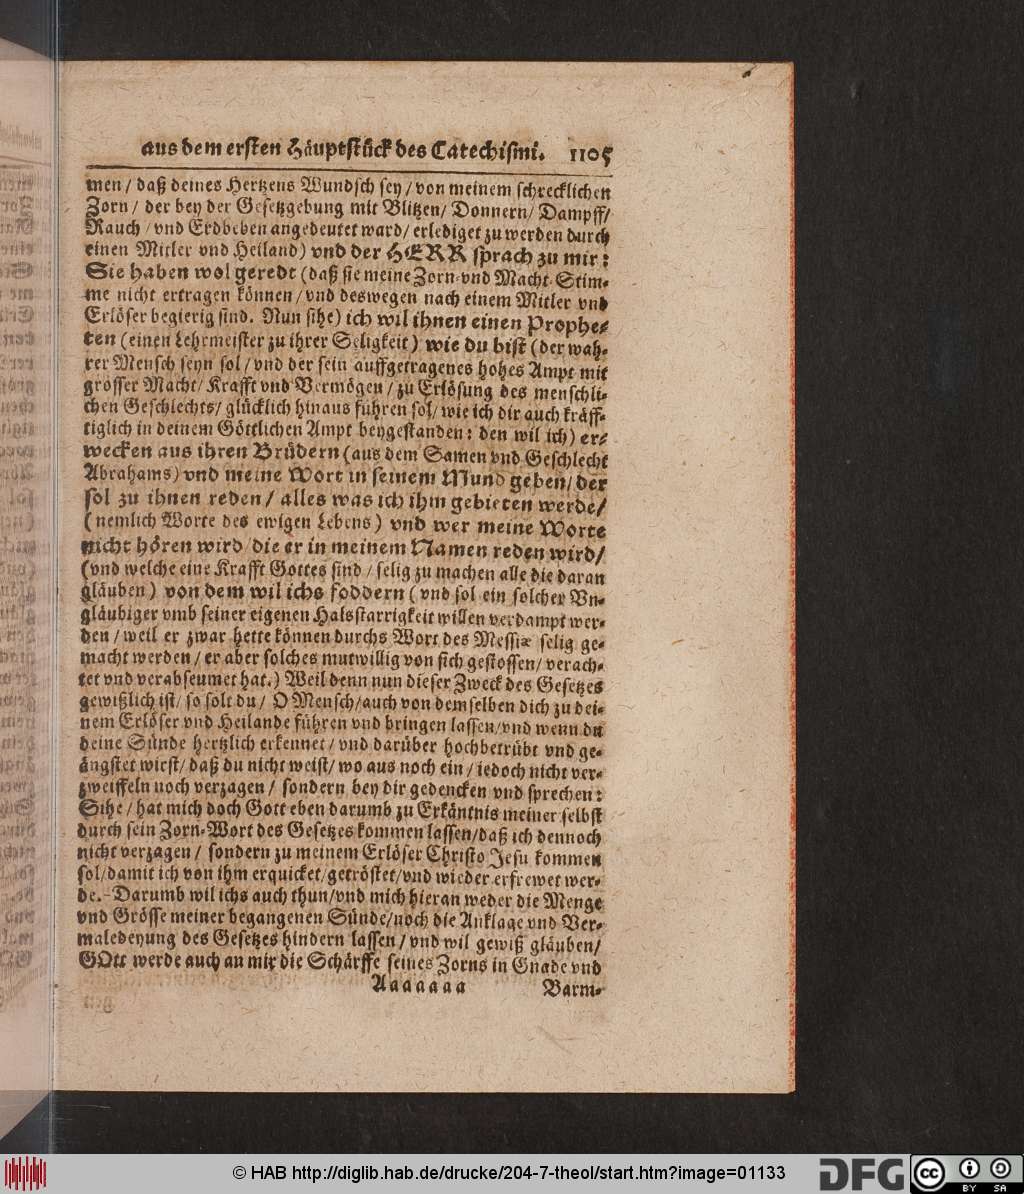 aus dem ersten Häuptstück des Catechismi. 1105
men / daß deines Hertzens Wundsch sey / von meinem schrecklichen
Zorn / der bey der Gesetzgebung mit Blitzen / Donnern / Dampff /
Rauch / vnd Erdbeben angedeutet ward / erlediget zu werden durch
einen Mitler vnd Heiland) vnd der HERR sprach zu mir:
Sie haben wol geredt (daß sie meine Zorn- vnd Macht-Stim-
me nicht ertragen können / vnd deswegen nach einem Mitler vnd
Erlöser begierig sind. Nun sihe) ich wil ihnen einen Prophe-
ten (einen Lehrmeister zu ihrer Seligkeit) wie du bist (der wah-
rer Mensch seyn sol / vnd der sein auffgetragenes hohes Ampt mit
grosser Macht / Krafft vnd Vermögen / zu Erlösung des menschli-
chen Geschlechts / glücklich hinaus führen sol / wie ich dir auch kräff-
tiglich in deinem Göttlichen Ampt beygestanden: den wil ich) er-
wecken aus ihren Brüdern (aus dem Samen vnd Geschlecht
Abrahams) vnd meine Wort in seinem Mund geben / der
sol zu ihnen reden / alles was ich ihm gebieten werde /
(nemlich Worte des ewigen Lebens) vnd wer meine Worte
nicht hören wird / die er in meinem Namen reden wird /
(vnd welche eine Krafft Gottes sind / selig zu machen alle die daran
gläuben) von dem wil ichs foddern (vnd sol ein solcher Vn-
gläubiger vmb seiner eigenen Halsstarrigkeit willen verdampt wer-
den / weil er zwar hette können durchs Wort des Messiæ selig ge-
macht werden / er aber solches mutwillig von sich gestossen / verach-
tet vnd verabseumet hat.) Weil denn nun dieser Zweck des Gesetzes
gewißlich ist / so solt du / O Mensch / auch von demselben dich zu dei-
nem Erlöser vnd Heilande führen vnd bringen lassen / vnd wenn du
deine Sünde hertzlich erkennet / vnd darüber hochbetrübt vnd ge-
ängstet wirst / daß du nicht weist / wo aus noch ein / iedoch nicht ver-
zweiffeln noch verzagen / sondern bey dir gedencken vnd sprechen:
Sihe / hat mich doch Gott eben darumb zu Erkäntnis meiner selbst
durch sein Zorn-Wort des Gesetzes kommen lassen / daß ich dennoch
nicht verzagen / sondern zu meinem Erlöser Christo Jesu kommen
sol / damit ich von ihm erquicket / getröstet / vnd wieder erfrewet wer-
de. Darumb wil ichs auch thun / vnd mich hieran weder die Menge
vnd Grösse meiner begangenen Sünde / noch die Anklage vnd Ver-
maledeyung des Gesetzes hindern lassen / vnd wil gewiß gläuben /
GOtt werde auch an mir die Schärffe seines Zorns in Gnade vnd
Aaaaaaa Barm-
© HAB http://diglib.hab.de/drucke/204-7-theol/start.htm?image=01133
DFG
cc BY SA